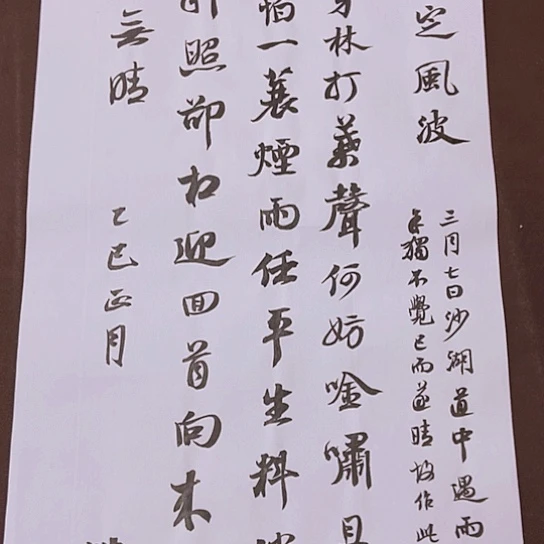 定風波
三月七日沙湖道中遇雨
余獨不覺已而遂晴故作此
穿林打葉聲何妨唫嘯且
怕一蓑煙雨任平生料
斜照卻相迎回首向來
無晴
乙巳正月